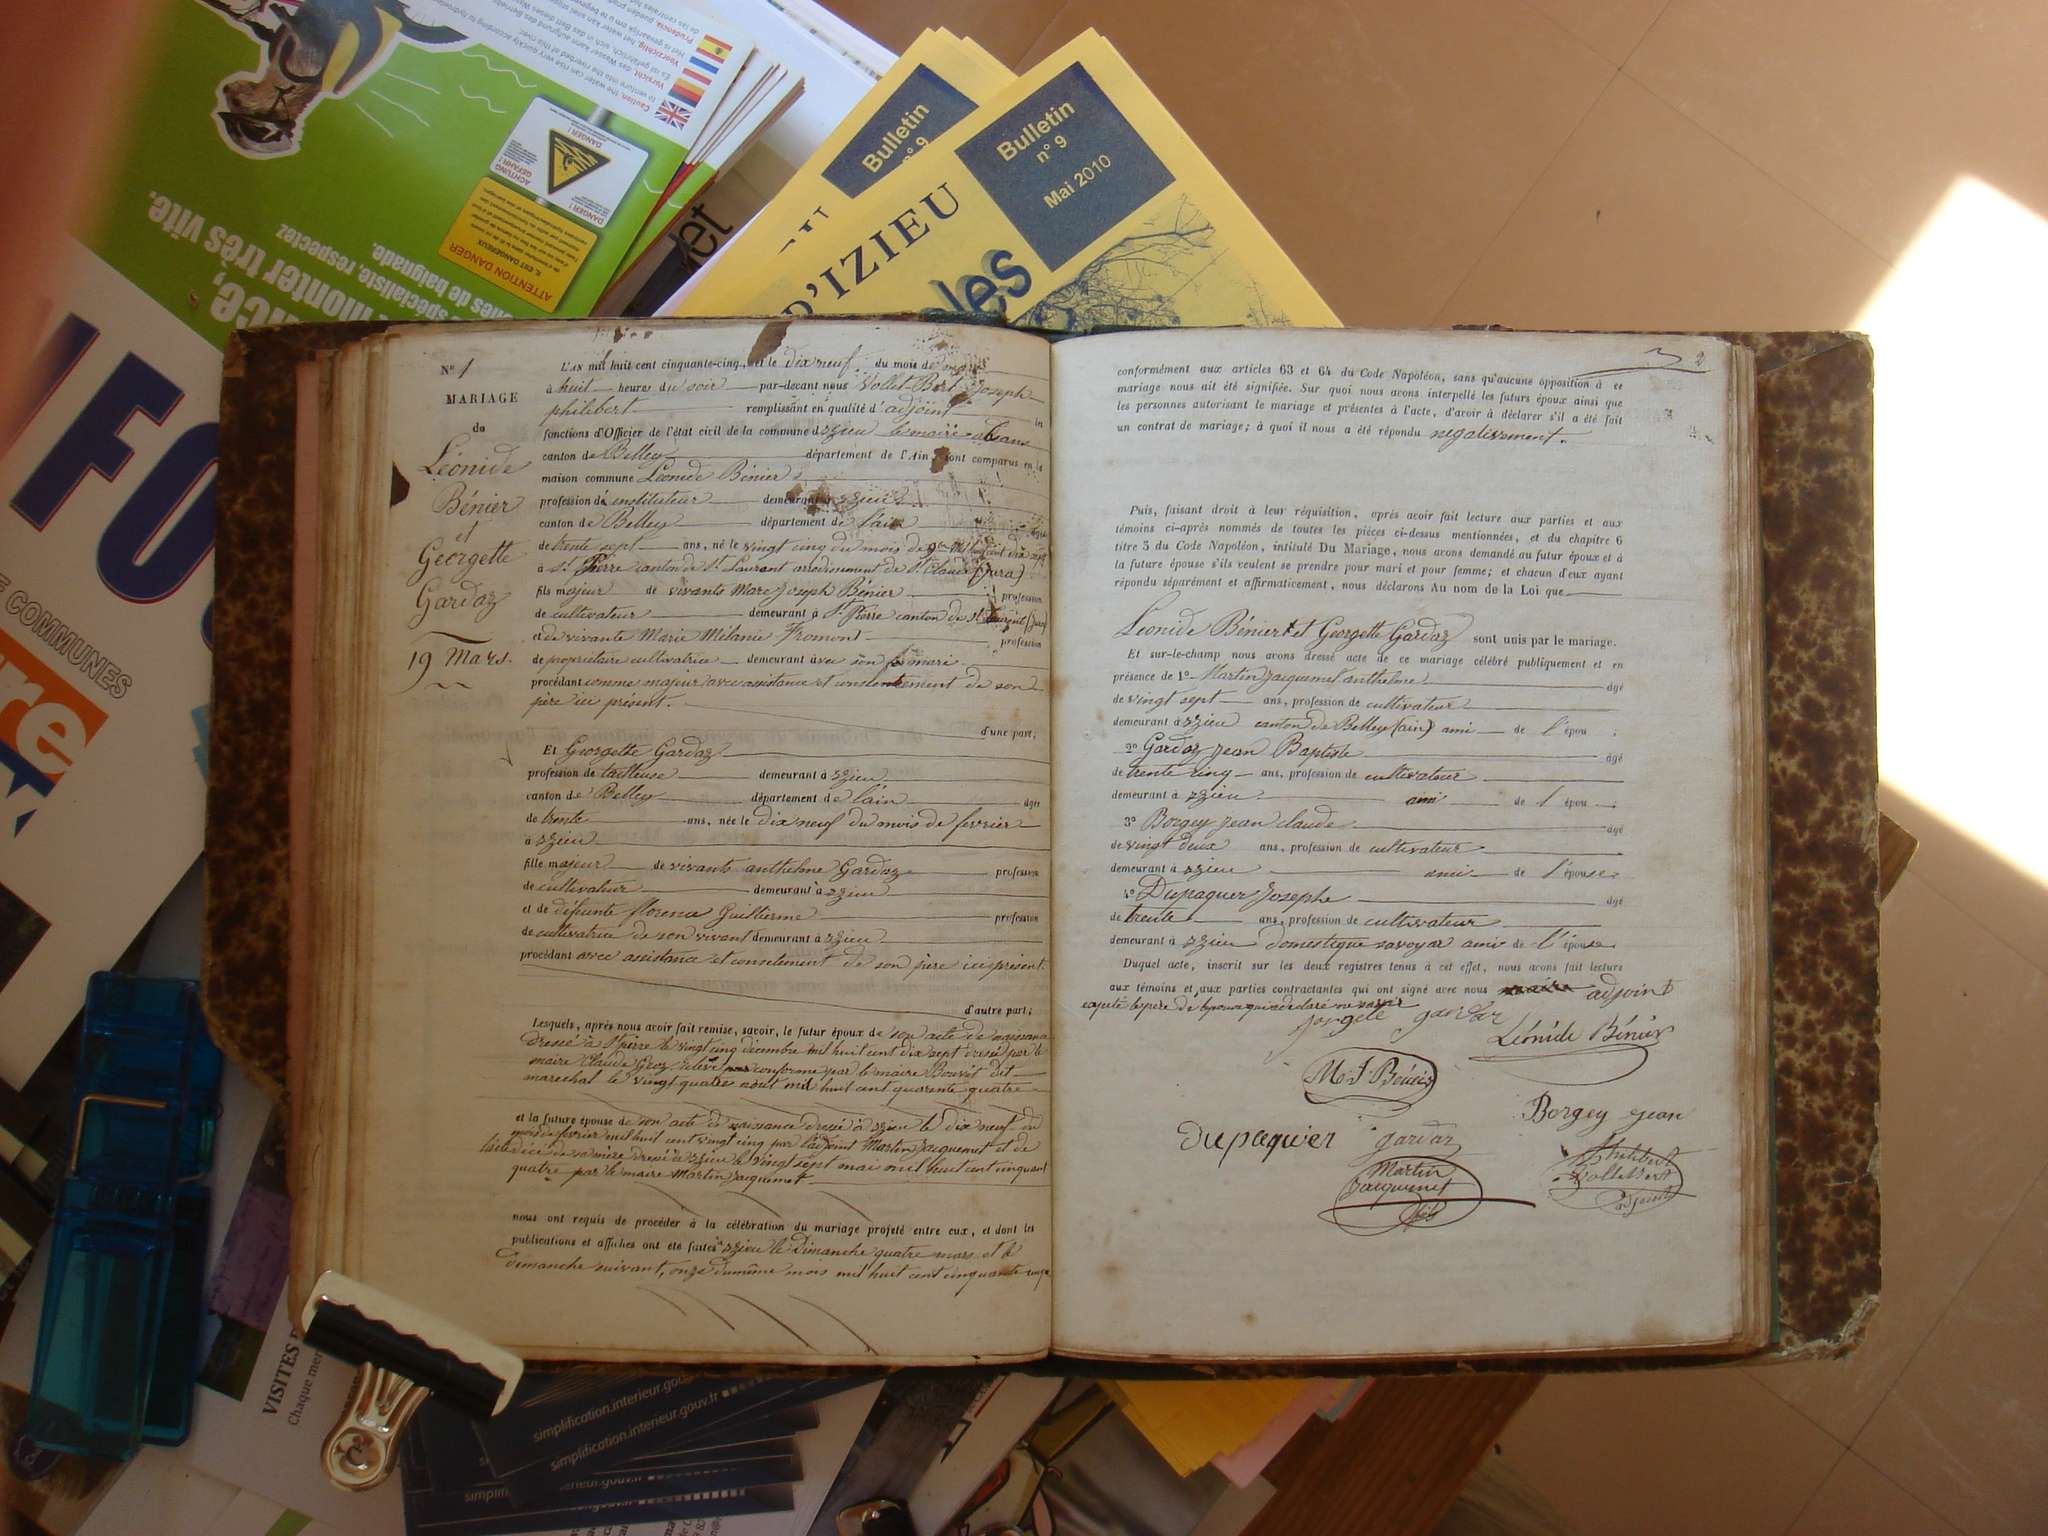 Bulletin
n° 9
Bulletin
n° 9
Mai 2010
D'IZIEU
Caution, the water can rise very quickly according to
to venture into the riverbed of this river.
Vorsicht,
Voorzichtig,
Prudencia,
DANGER !
ACHTUNG
GEFAHR !
DANGER !
ATTENTION DANGER
IL EST DANGEREUX
monter très vite.
spécialiste, respectez
de baignade.
COMMUNES
N° 1
MARIAGE
de
Léonide
Bénier
et
Georgette
Gardaz
19 Mars.
L'AN mil huit cent cinquante-cinq, et le dix neuf du mois de mars
à huit heures du soir par-devant nous Vollet Bert Joseph
philibert remplissant en qualité d'adjoint les
fonctions d'Officier de l'état civil de la commune d'izieu le maire absans
canton de Belley département de l'Ain, sont comparus en la
maison commune Léonide Bénier
profession de instituteur demeurant à izieu
canton de Belley département de l'ain âgé
de trente sept ans, né le vingt cinq du mois de 9bre mil huit cent dix sept
à St Pierre canton de St Laurent arrodissment de St Claude (jura)
fils majeur de vivants Marc Joseph Bénier profession
de cultivateur demeurant à St Pierre canton de St Laurent (jura)
et de vivante Marie Mélanie Fromont profession
de propriétaire cultivatrice demeurant avec son mari
procédant comme majeur avec assistance et consentement de son
père ici présent.
d'une part;
Et Georgette Gardaz
profession de tailleuse demeurant à izieu
canton de Belley département de l'ain âgée
de trente ans, née le dix neuf du mois de fevrier
à izieu
fille majeur de vivants anthelme Gardaz profession
de cultivateur demeurant à izieu
et de défunte florence Guillerme profession
de cultivatrice de son vivant demeurant à izieu
procédant avec assistance et consetement de son père ici présent.
d'autre part;
Lesquels, après nous avoir fait remise, savoir, le futur époux de son acte de naissance
dressé à St pierre le vingt cinq décembre mil huit cent dix sept dressé par le
maire Claude Groz relevé conforme par le maire Bouvet dit
marechal le vingt quatre aout mil huit cent quarente quatre
et la future épouse de son acte de naissance dressé à izieu le dix neuf du
mois de fevrier mil huit cent vingt cinq par l'adjoint Martin jacquemet et de
l'acte décé de sa mère dressé à izieu le vingt sept mai mil huit cent cinquant
quatre par le maire Martin jacquemet
nous ont requis de procéder à la célébration du mariage projeté entre eux, et dont les
publications et affiches ont été faites à izieu le dimanche quatre mars et le
dimanche suivant, onze du même mois mil huit cent cinquante cinq.
2
conformément aux articles 63 et 64 du Code Napoléon, sans qu'aucune opposition à ce
mariage nous ait été signifiée. Sur quoi nous avons interpellé les futurs époux ainsi que
les personnes autorisant le mariage et présentes à l'acte, d'avoir à déclarer s'il a été fait
un contrat de mariage; à quoi il nous a été répondu negativement.
Puis, faisant droit à leur réquisition, après avoir fait lecture aux parties et aux
témoins ci-après nommés de toutes les pièces ci-dessus mentionnées, et du chapitre 6
titre 5 du Code Napoléon, intitulé Du Mariage, nous avons demandé au futur époux et à
la future épouse s'ils veulent se prendre pour mari et pour femme; et chacun d'eux ayant
répondu séparément et affirmativement, nous déclarons Au nom de la Loi que
Léonide Bénier et Georgette Gardaz sont unis par le mariage.
Et sur-le-champ nous avons dressé acte de ce mariage célébré publiquement et en
présence de 1° Martin jacquemet anthelme âgé
de vingt sept ans, profession de cultivateur
demeurant à izieu canton de Belley (ain) ami de l'épou ;
2° Gardaz jean Baptiste âgé
de trente cinq ans, profession de cultivateur
demeurant à izieu ami de l'épou ;
3° Borgey jean claude âgé
de vingt deux ans, profession de cultivateur
demeurant à izieu ami de l'épouse
4° Dupaquer Josephe âgé
de trente ans, profession de cultivateur
demeurant à izieu domestique savoyar ami de l'épouse
Duquel acte, inscrit sur les deux registres tenus à cet effet, nous avons fait lecture
aux témoins et aux parties contractantes qui ont signé avec nous maire adjoint
excepté le père de l'épouse qui a declaré ne savoir
jorgete gardaz
Léonide Bénier
M. J Bénier
Borgey jean
Dupaquier
gardaz
Martin
Jacquemet
fils
Philibert
Volletbert
adjoint
VISITES
Chaque
simplification.interieur.gouv.fr
simplification.interieur.gouv.fr